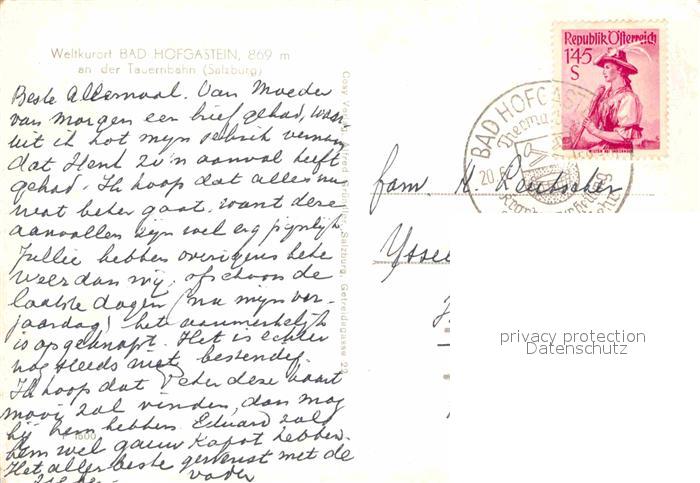 Weltkurort BAD HOFGASTEIN, 869 m
an der Tauernbahn (Salzburg)
Beste Allemaal. Van Moeder
van morgen een brief gehad, waar
uit ik tot mijn schrik vernam
dat Henk zo'n aanval heeft
gehad. Ik hoop dat alles nu
wat beter gaat. want deze
aanvallen zijn wel erg pijnlijk
Jullie hebben overigens beter
weer dan wij, ofschoon de
laatste dagen (na mijn ver-
jaardag) het aanmerkelijk
is opgeknapt. Het is echter
nog steeds niet bestendig.
Ik hoop dat Peter deze kaart
mooi zal vinden, dan mag
hij hem hebben. Eduard zal
hem wel gauw kapot hebben.
Het aller beste gewenst met de
vader
1500
Cosy Verlag Alfred Gründler, Salzburg, Getreidegasse 22
Republik Österreich
1.45
S
BAD HOFGAST
20.6
fam. H. Deutscher
Yssel
privacy protection
Datenschutz